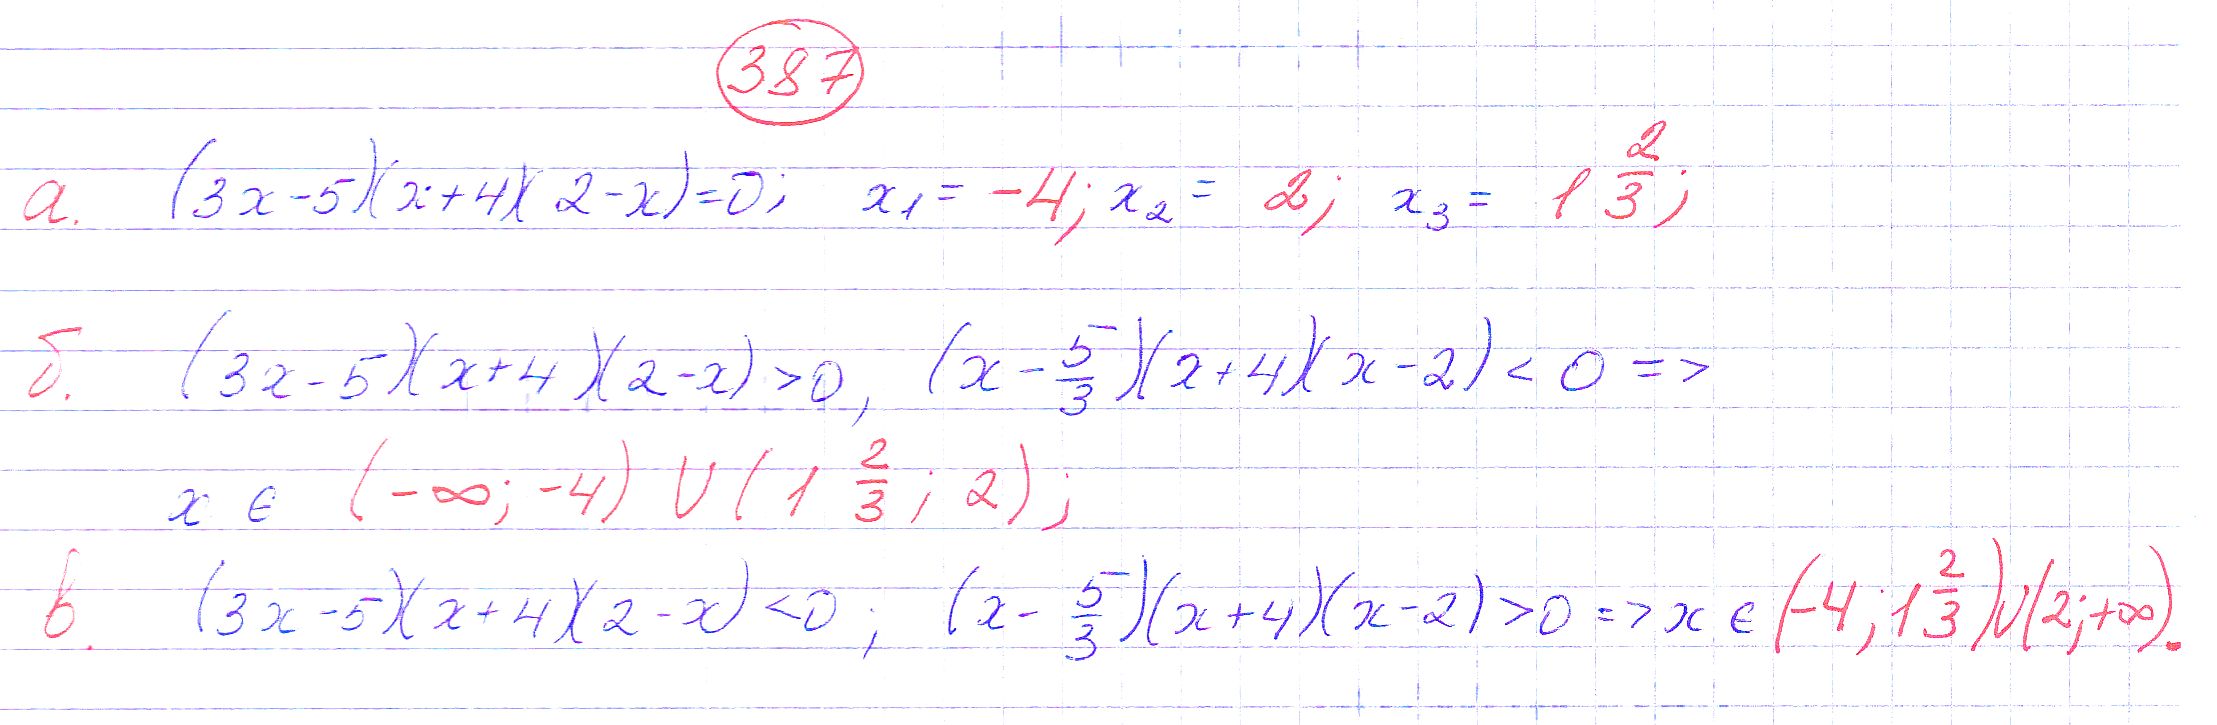 387
а. (3x-5)(x+4)(2-x)=0; x₁= -4; x₂= 2; x₃= 1 2/3;
б. (3x-5)(x+4)(2-x)>0, (x-5/3)(x+4)(x-2)<0 =>
x ϵ (-∞; -4) U (1 2/3; 2);
в. (3x-5)(x+4)(2-x)<0; (x-5/3)(x+4)(x-2)>0 => x ϵ (-4; 1 2/3)U(2;+∞).